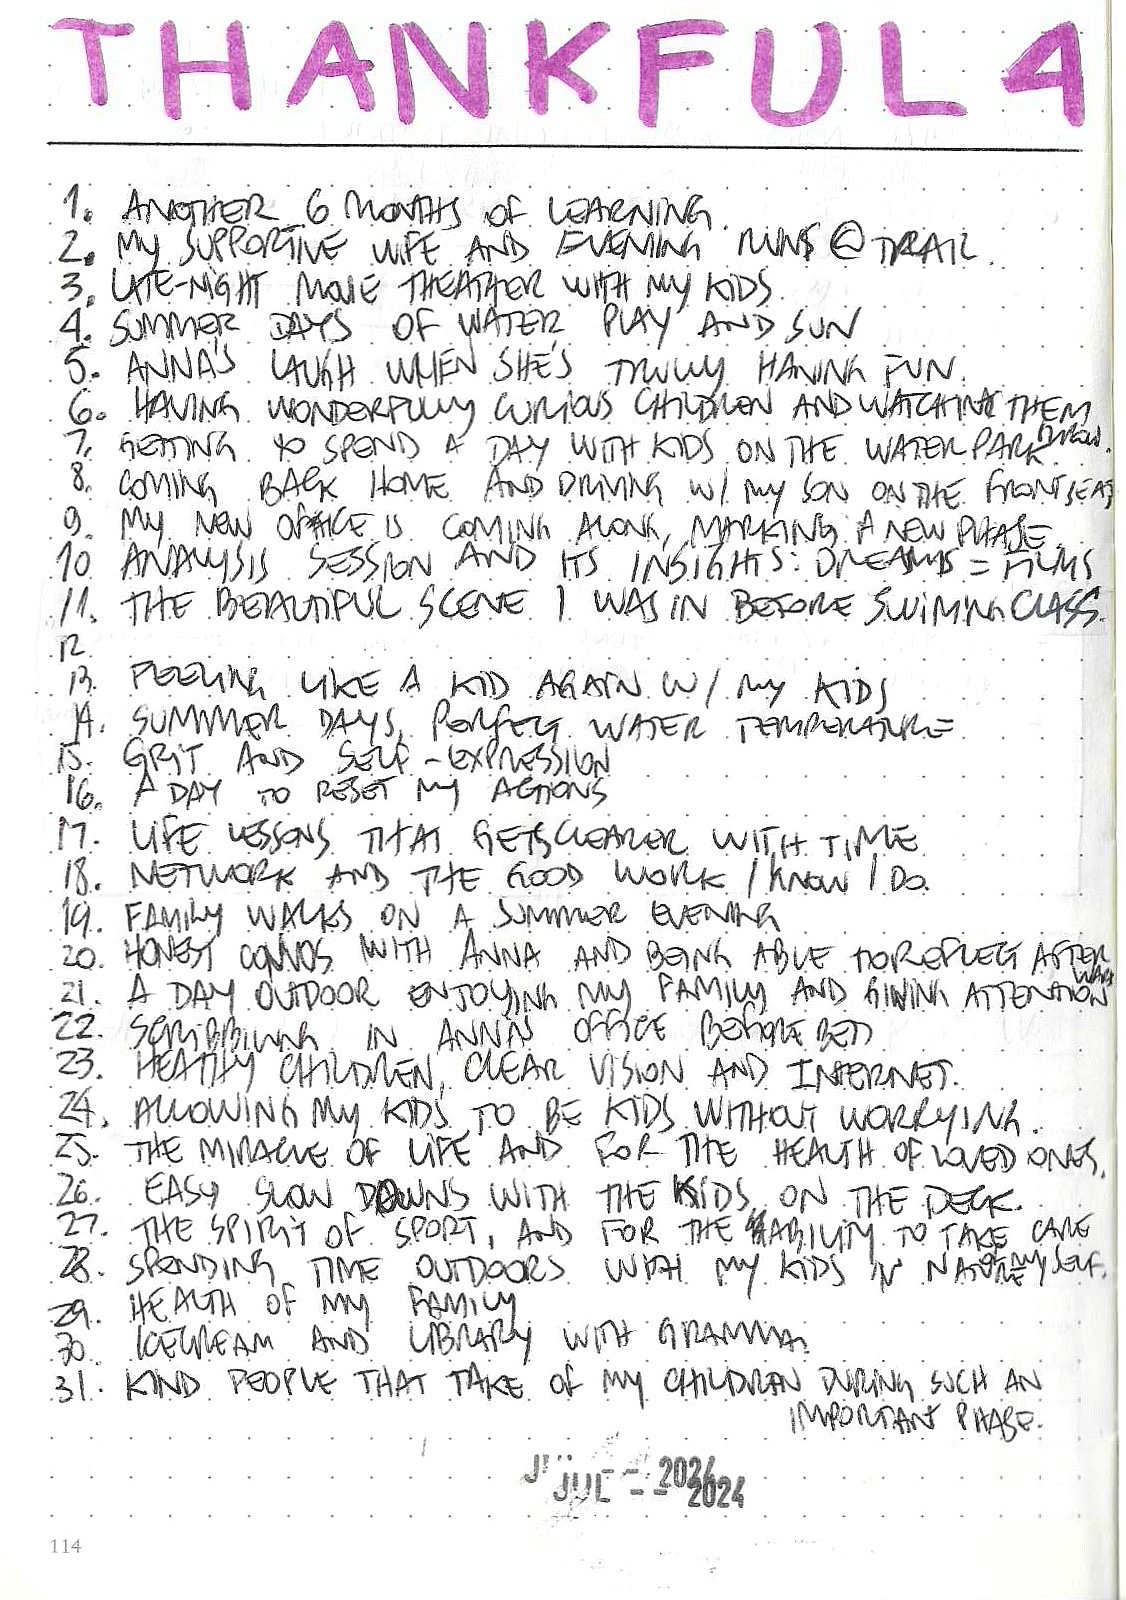 THANKFUL 4
1. ANOTHER 6 MONTHS OF LEARNING
2. MY SUPPORTIVE WIFE AND EVENING RUNS @ TRAIL
3. LATE-NIGHT MOVIE THEATHER WITH MY KIDS
4. SUMMER DAYS OF WATER PLAY AND SUN
5. ANNA'S LAUGH WHEN SHE'S TRULLY HAVING FUN.
6. HAVING WONDERFULLY CURIOUS CHILDREN AND WATCHING THEM
GROW.
7. GETTING TO SPEND A DAY WITH KIDS ON THE WATER PARK
8. COMING BACK HOME AND DRIVING W/ MY SON ON THE FRONT SEAT
9. MY NEW OFFICE IS COMING ALONG, MARKING A NEW PHASE
10 ANALYSIS SESSION AND ITS INSIGHTS: DREAMS = FILMS
11. THE BEAUTIFUL SCENE I WAS IN BEFORE SWIMING CLASS.
12.
13. FEELING LIKE A KID AGAIN W/ MY KIDS
14. SUMMER DAYS, PERFECT WATER TEMPERATURE
15. GRIT AND SELF-EXPRESSION
16. A DAY TO RESET MY ACTIONS
17. LIFE LESSONS THAT GETS CLEARER WITH TIME
18. NETWORK AND THE GOOD WORK I KNOW I DO.
19. FAMILY WALKS ON A SUMMER EVENING
20. HONEST CONVOS WITH ANNA AND BEING ABLE TO REFLECT AFTER
WARD
21. A DAY OUTDOOR ENJOYING MY FAMILY AND GIVING ATTENTION
22. SCRIBBILING IN ANNA'S OFFICE BEFORE BED
23. HEATHY CHILDREN, CLEAR VISION AND INTERNET.
24. ALLOWING MY KIDS TO BE KIDS WITHOUT WORRYING.
25. THE MIRACLE OF LIFE AND FOR THE HEALTH OF LOVED ONES.
26. EASY SLOW DOWNS WITH THE KIDS ON THE DECK.
27. THE SPIRIT OF SPORT, AND FOR THE ABILITY TO TAKE CARE
OF MYSELF.
28. SPENDING TIME OUTDOORS WITH MY KIDS IN NATURE
29. HEALTH OF MY FAMILY
30. ICECREAM AND LIBRARY WITH GRAMMA.
31. KIND PEOPLE THAT TAKE OF MY CHILDREN DURING SUCH AN
IMPORTANT PHASE.
2024
JUL -- 2024
114